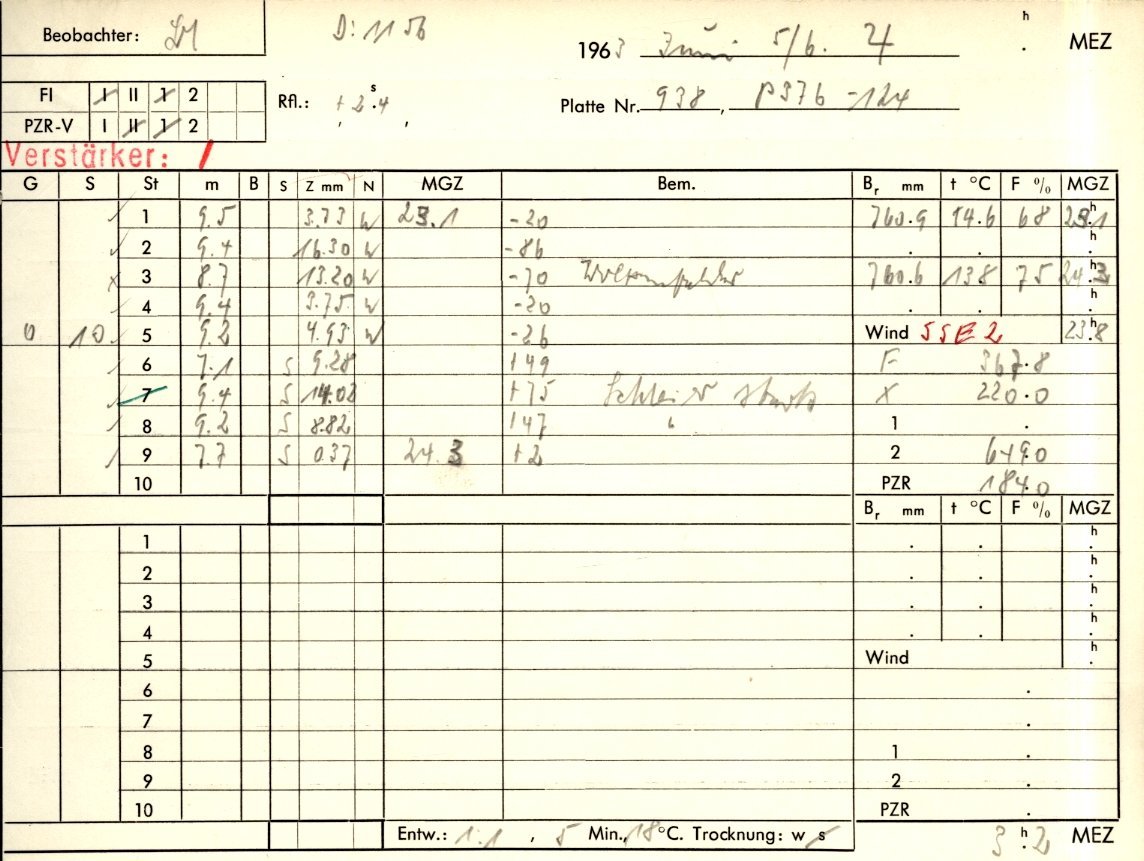 Beobachter:
D: 11 56
1963 Juni 5/6. 4 h . MEZ
FI I II 1 2
PZR-V I II 1 2
Rfl.: + 2 s .4
Platte Nr. 938, P376 -124
Verstärker: /
G S St m B S Z mm N MGZ Bem. Br mm t °C F % MGZ
1 9.5 3.73 W 23.1 -20 760.9 14.6 68 23h.1
2 9.4 16.30 W -86 . . h
3 8.7 13.20 W -70 Wolkenfelder 760.6 13.8 75 24h.3
4 9.4 3.75 W -20 . . h
0 10 5 9.2 4.93 W -26 Wind SSE 2 23h.8
6 7.1 S 9.28 +49 F 367.8
7 9.4 S 14.02 +75 Schleier stark X 220.0
8 9.2 S 8.82 +47 " 1 .
9 7.7 S 0.37 24.3 +2 2 649.0
10 PZR 184.0
Br mm t °C F % MGZ
1 . . h .
2 . . h .
3 . . h .
4 . . h .
5 Wind h .
6 .
7 .
8 1 .
9 2 .
10 PZR .
Entw.: 1:1 , 5 Min., 18°C. Trocknung: w s 3 h.2 MEZ